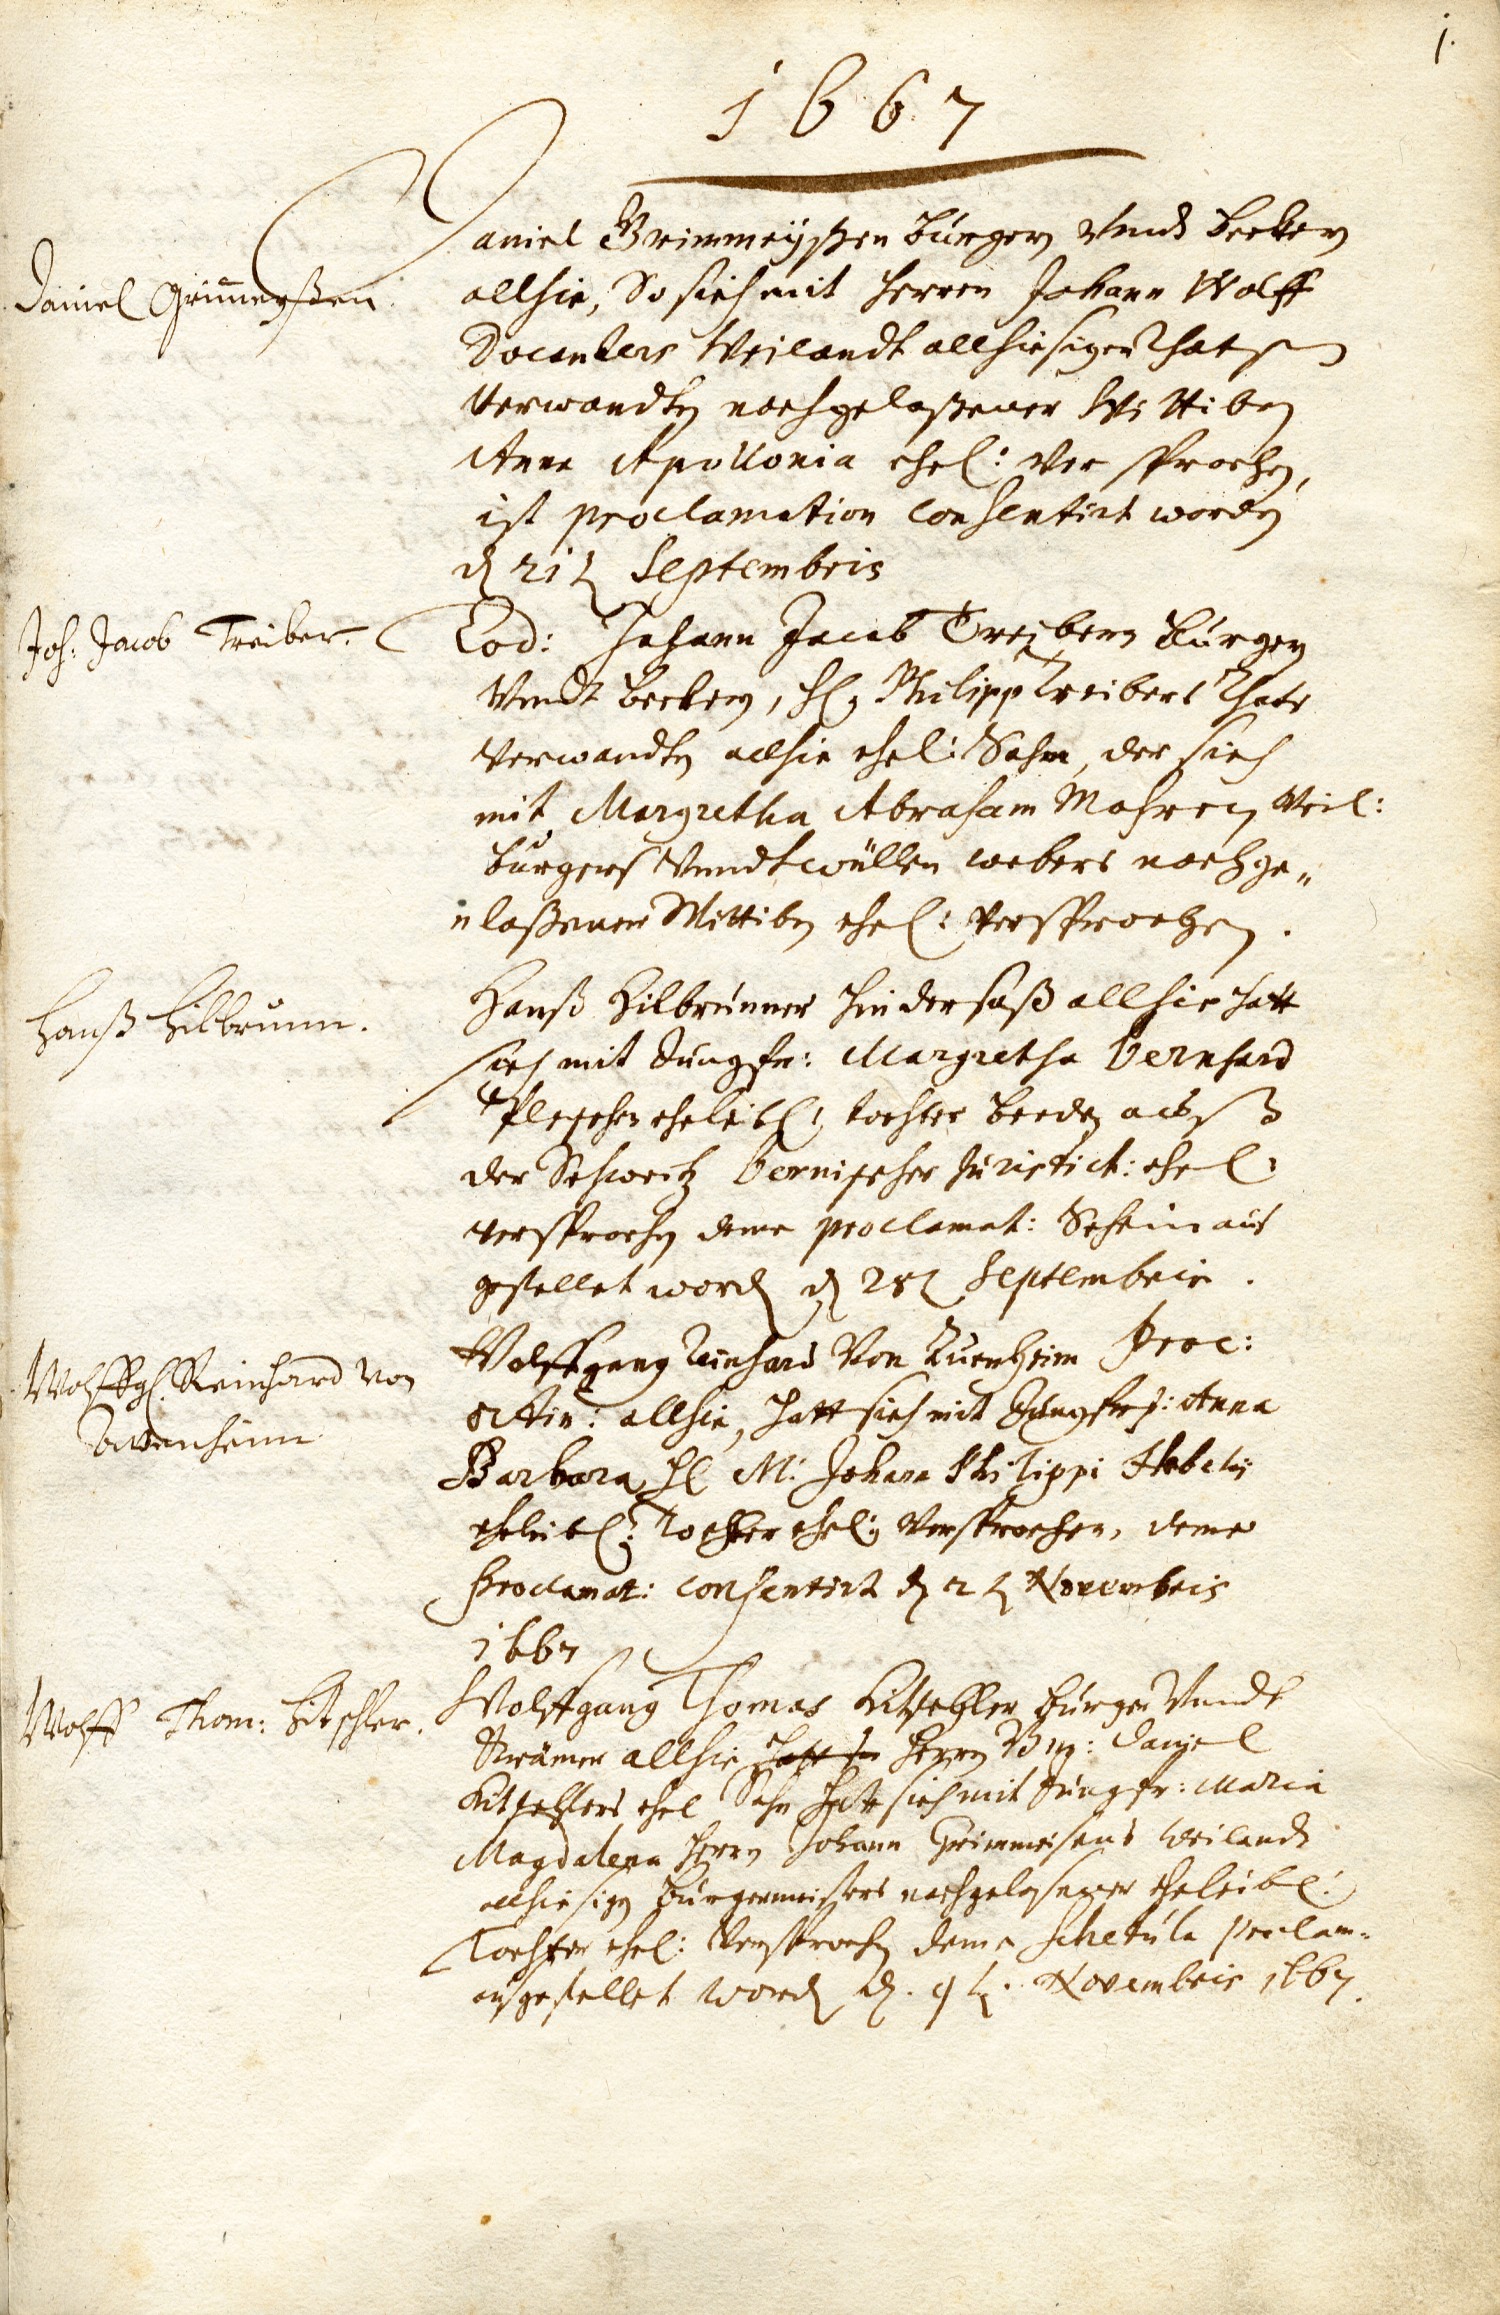 1.
1667
Daniel Grimmeyßen
Daniel Grimmeyßen Burger Vndt becker
allhie, So sich mit Herren Johann Wolff
Weilandt allhiesigen Rhats
Verwandten nachgelaßener Wittiben
Anna Apollonia ehel: Versprochen,
ist proclamation consentirt worden
d 21t Septembris
Joh: Jacob Treiber.
Eod: Johann Jacob Treibern Burger
Vndt becker, H: Philipp Treibers Rhats
Verwandten allhie ehel: Sohn, der sich
mit Margretha Abraham Mohren Weil:
Burgers Vndt wüllen webers nachge„
„laßener Wittiben ehel: Versprochen.
Hanß Hilbrunn.
Hanß Hilbrunner Hindersaß allhie hatt
sich mit Jungfr: Margretha Bernhard
eheleibl: tochter beeden auß
der Schweitz Bernischer Juristict: ehel:
versprochen deme proclamat: Schein auß
gestellet word d 28t Septembris.
Wolffg. Reinhard von
Zuenheim
Wolffgang Reinhard Von Zuenheim Proc:
allhie, hatt sich mit Jungfr: Anna
Barbara H M: Johann Philippi
eheleibl: Tochter ehel: Versprochen, deme
Proclamat: consentirt d 2t Novembris
1667
Wolff Thom: Kitschler.
Wolffgang Thomas Kitschler Burger Vndt
Krämer allhie Herrn Brg: Daniel
Kitschlers ehel Sohn hatt sich mit Jungfr: Maria
Magdalena Herrn Johann Grimmeisens Weilandt
allhiesigen Burgermeisters nachgelaßener eheleibl:
Tochter ehel: Versprochen deme schetula proclam:
außgestellet word d. 9t. Novembris 1667.